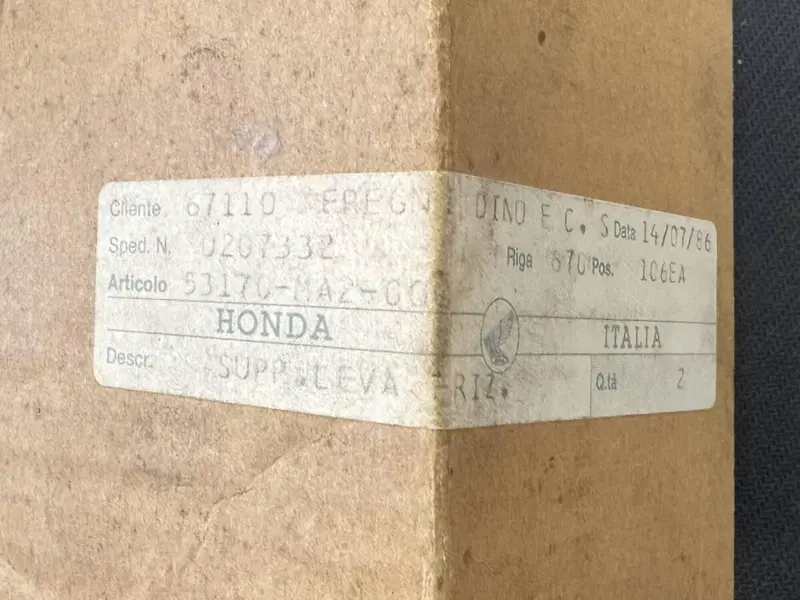 Cliente 67110 DINO E C. S Data 14/07/86
Sped. N. 0207332 Riga 670 Pos. 106EA
Articolo 53170-MA2-
HONDA ITALIA
Descr. SUPP.LEVA Q.tà 2